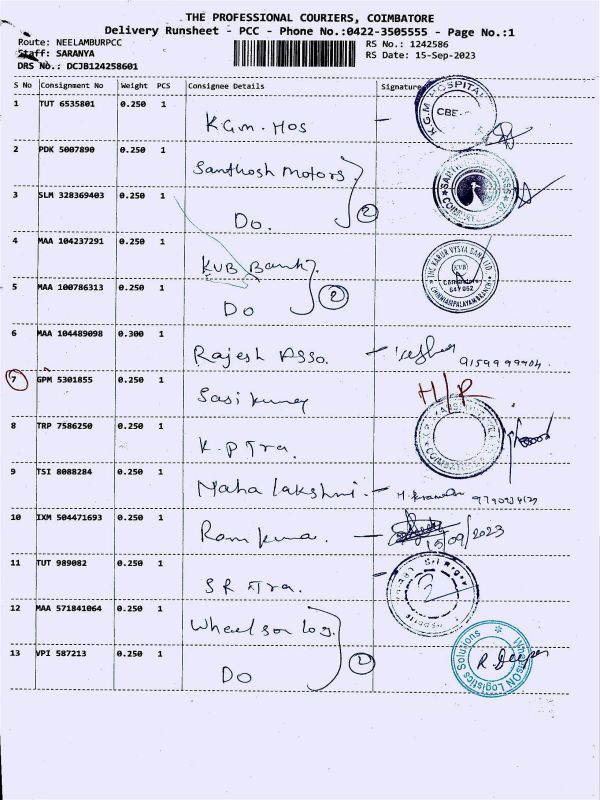 THE PROFESSIONAL COURIERS, COIMBATORE
Delivery Runsheet - PCC - Phone No.:0422-3505555 - Page No.:1
Route: NEELAMBURPCC RS No.: 1242586
Staff: SARANYA RS Date: 15-Sep-2023
DRS No.: DCJB124258601
S No Consignment No Weight PCS Consignee Details Signature
1 TUT 6535801 0.250 1 K.G.m. Hos K.G.M HOSPITAL CBE
2 PDK 5007890 0.250 1 Santhosh Motors
3 SLM 328369403 0.250 1 Do. 2
4 MAA 104237291 0.250 1 KVB Bank THE KARUR VYSYA BANK LTD. KVB
5 MAA 100786313 0.250 1 Do 2 CHINNIAMPALAYAM BRANCH
6 MAA 104489098 0.300 1 Rajesh Asso.
7 GPM 5301855 0.250 1 Sasikumar H/R
8 TRP 7586250 0.250 1 K.P Tra.
9 TSI 8088284 0.250 1 Maha lakshmi
10 IXM 504471693 0.250 1 Ram kuma. 15/09/2023
11 TUT 989082 0.250 1 SR Tra.
12 MAA 571841064 0.250 1 Wheelson Log.
13 VPI 587213 0.250 1 Do 2 WheelsON Logistics Solutions R. Deepan